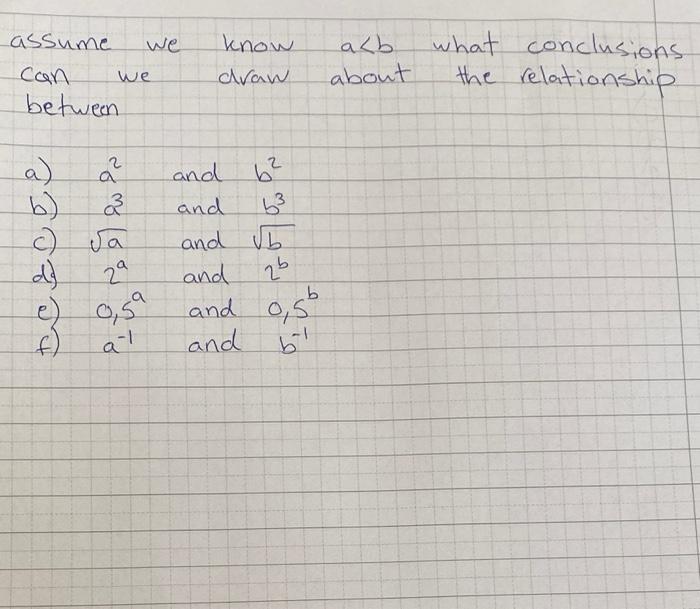 assume we know a<b what conclusions
can we draw about the relationship
between
a) a² and b²
b) a³ and b³
c) √a and √b
d) 2ᵃ and 2ᵇ
e) 0,5ᵃ and 0,5ᵇ
f) a⁻¹ and b⁻¹